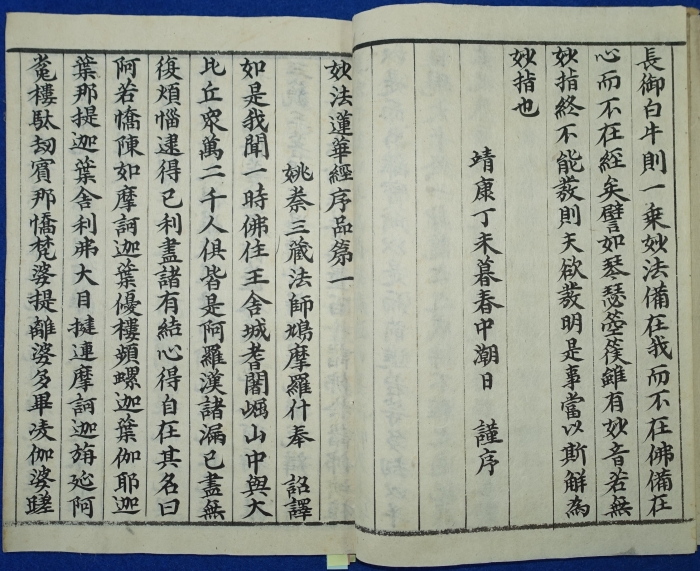 長御白牛則一乗妙法備在我而不在佛備在
心而不在經矣譬如琴瑟箜篌雖有妙音若無
妙指終不能發則夫欲發明是事當以斯解為
妙指也
靖康丁未暮春中潮日 謹序
妙法蓮華經序品第一
姚秦三藏法師鳩摩羅什奉 詔譯
如是我聞一時佛住王舍城耆闍崛山中與大
比丘眾萬二千人俱皆是阿羅漢諸漏已盡無
復煩惱逮得己利盡諸有結心得自在其名曰
阿若憍陳如摩訶迦葉優樓頻螺迦葉伽耶迦
葉那提迦葉舍利弗大目揵連摩訶迦旃延阿
㝹樓馱劫賓那憍梵婆提離婆多畢凌伽婆蹉